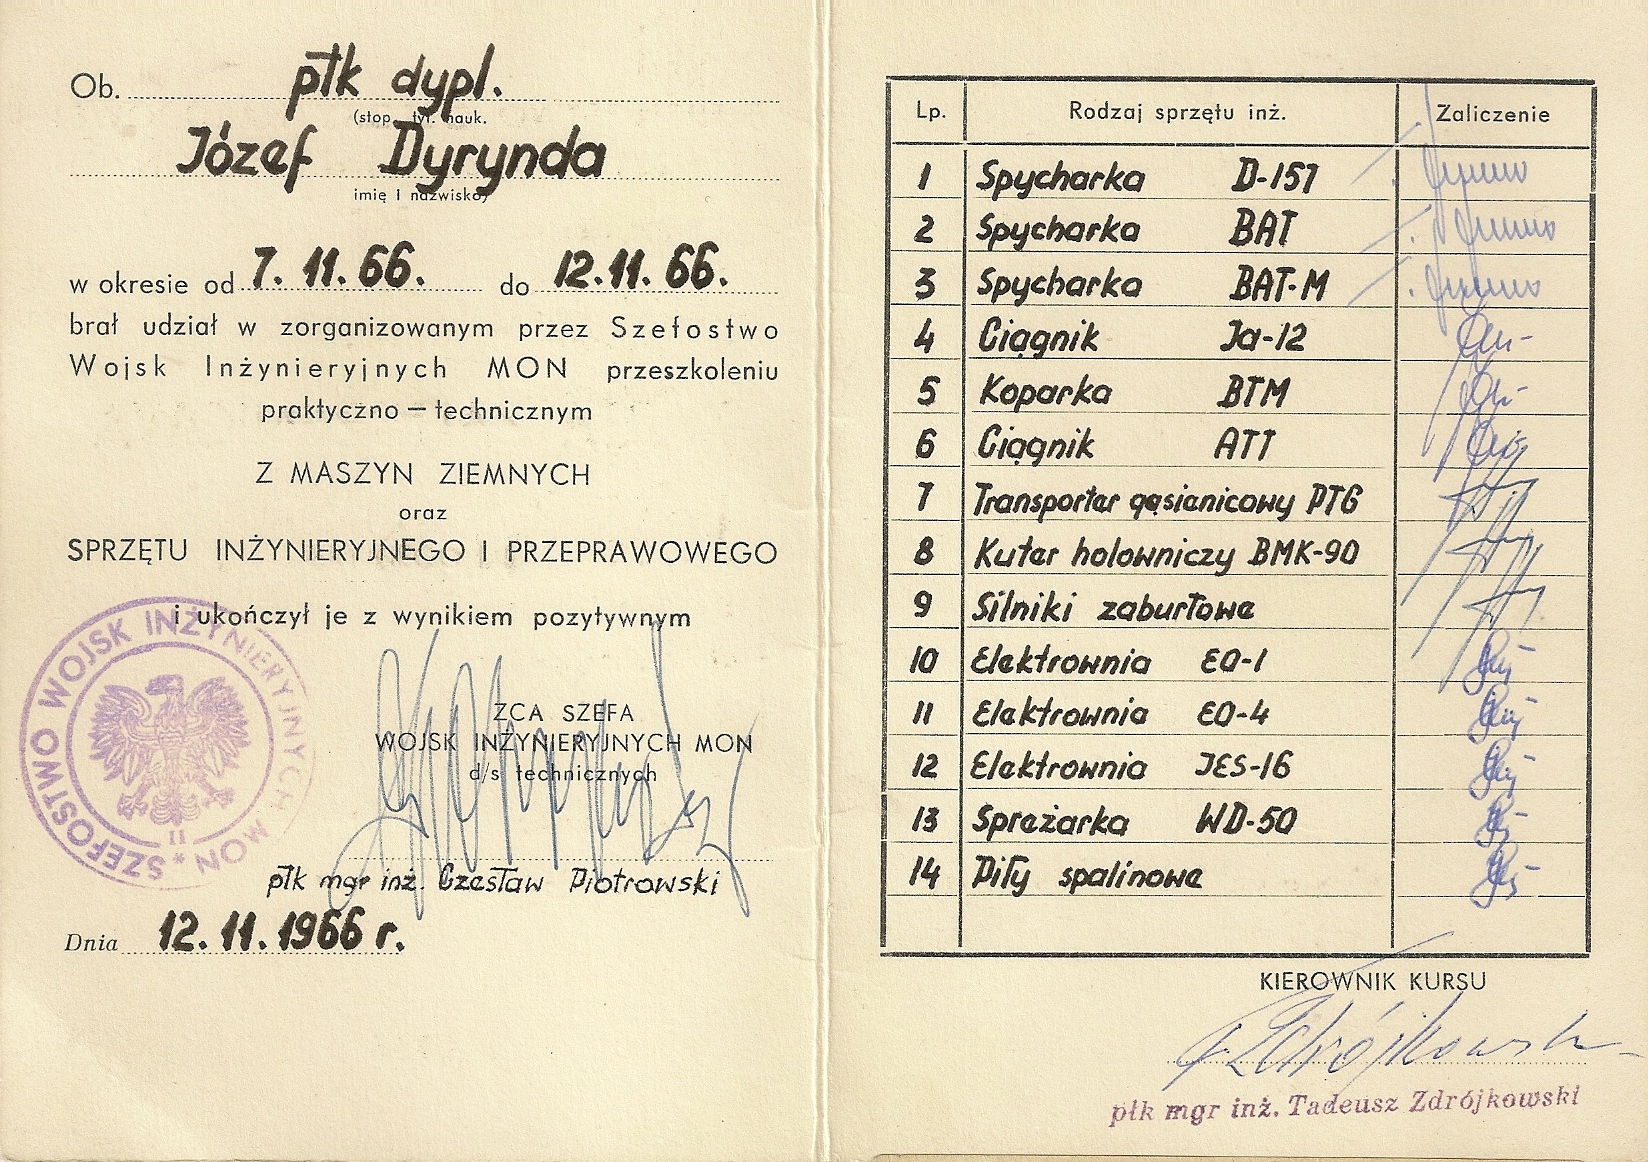 Ob. płk dypl.
(stop., tyt. nauk.
Józef Dyrynda
imię i nazwisko)
w okresie od 7. 11. 66. do 12. 11. 66.
brał udział w zorganizowanym przez Szefostwo
Wojsk Inżynieryjnych MON przeszkoleniu
praktyczno — technicznym
Z MASZYN ZIEMNYCH
oraz
SPRZĘTU INŻYNIERYJNEGO I PRZEPRAWOWEGO
i ukończył je z wynikiem pozytywnym
SZEFOSTWO WOJSK INŻYNIERYJNYCH MON *
II
ZCA SZEFA
WOJSK INŻYNIERYJNYCH MON
d/s technicznych
płk mgr inż. Czesław Piotrowski
Dnia 12. 11. 1966 r.
Lp. Rodzaj sprzętu inż. Zaliczenie
1 Spycharka D-157
2 Spycharka BAT
3 Spycharka BAT-M
4 Ciągnik Ja-12
5 Koparka BTM
6 Ciągnik ATT
7 Transporter gąsienicowy PTG
8 Kuter holowniczy BMK-90
9 Silniki zaburtowe
10 Elektrownia EO-1
11 Elektrownia EO-4
12 Elektrownia JES-16
13 Sprężarka WD-50
14 Piły spalinowe
KIEROWNIK KURSU
TZdrójkowski
płk mgr inż. Tadeusz Zdrójkowski